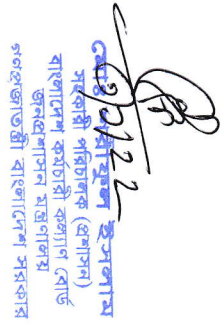 ইসলাম
সহকারী পরিচালক (প্রশাসন)
বাংলাদেশ কর্মচারী কল্যাণ বোর্ড
জনপ্রশাসন মন্ত্রণালয়
গণপ্রজাতন্ত্রী বাংলাদেশ সরকার